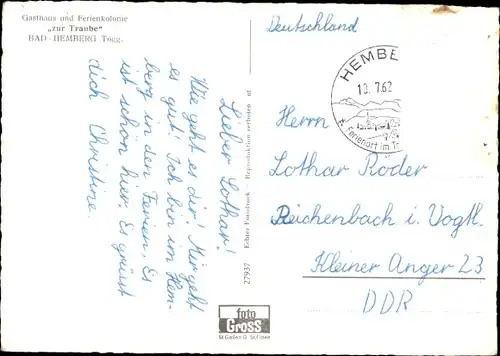 Gasthaus und Ferienkolonie
„zur Traube"
BAD-HEMBERG Togg.
Lieber Lothar!
Wie geht es dir? Mir geht
es gut! Ich bin im Hem-
berg in den Ferien. Es
ist schön hier. Es grüsst
dich Christine.
27937 Echter Fotodruck - Reproduktion verboten
foto
Gross
St.Gallen
Deutschland
HEMBE
10.7.62
Ferienort im T
Herrn
Lothar Roder
Reichenbach i. Vogtl.
Kleiner Anger 23
DDR